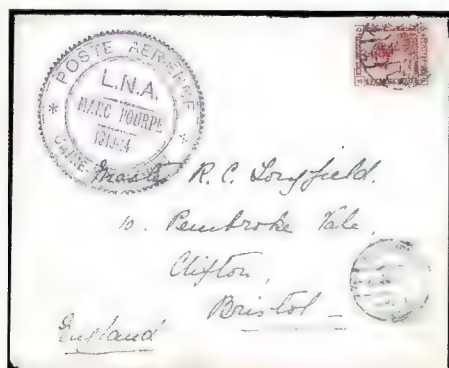 POSTE AERIENNE
L.N.A.
MARC POURPE
Master R. C. Longfield.
10. Pembroke Vale,
Clifton,
Bristol
England